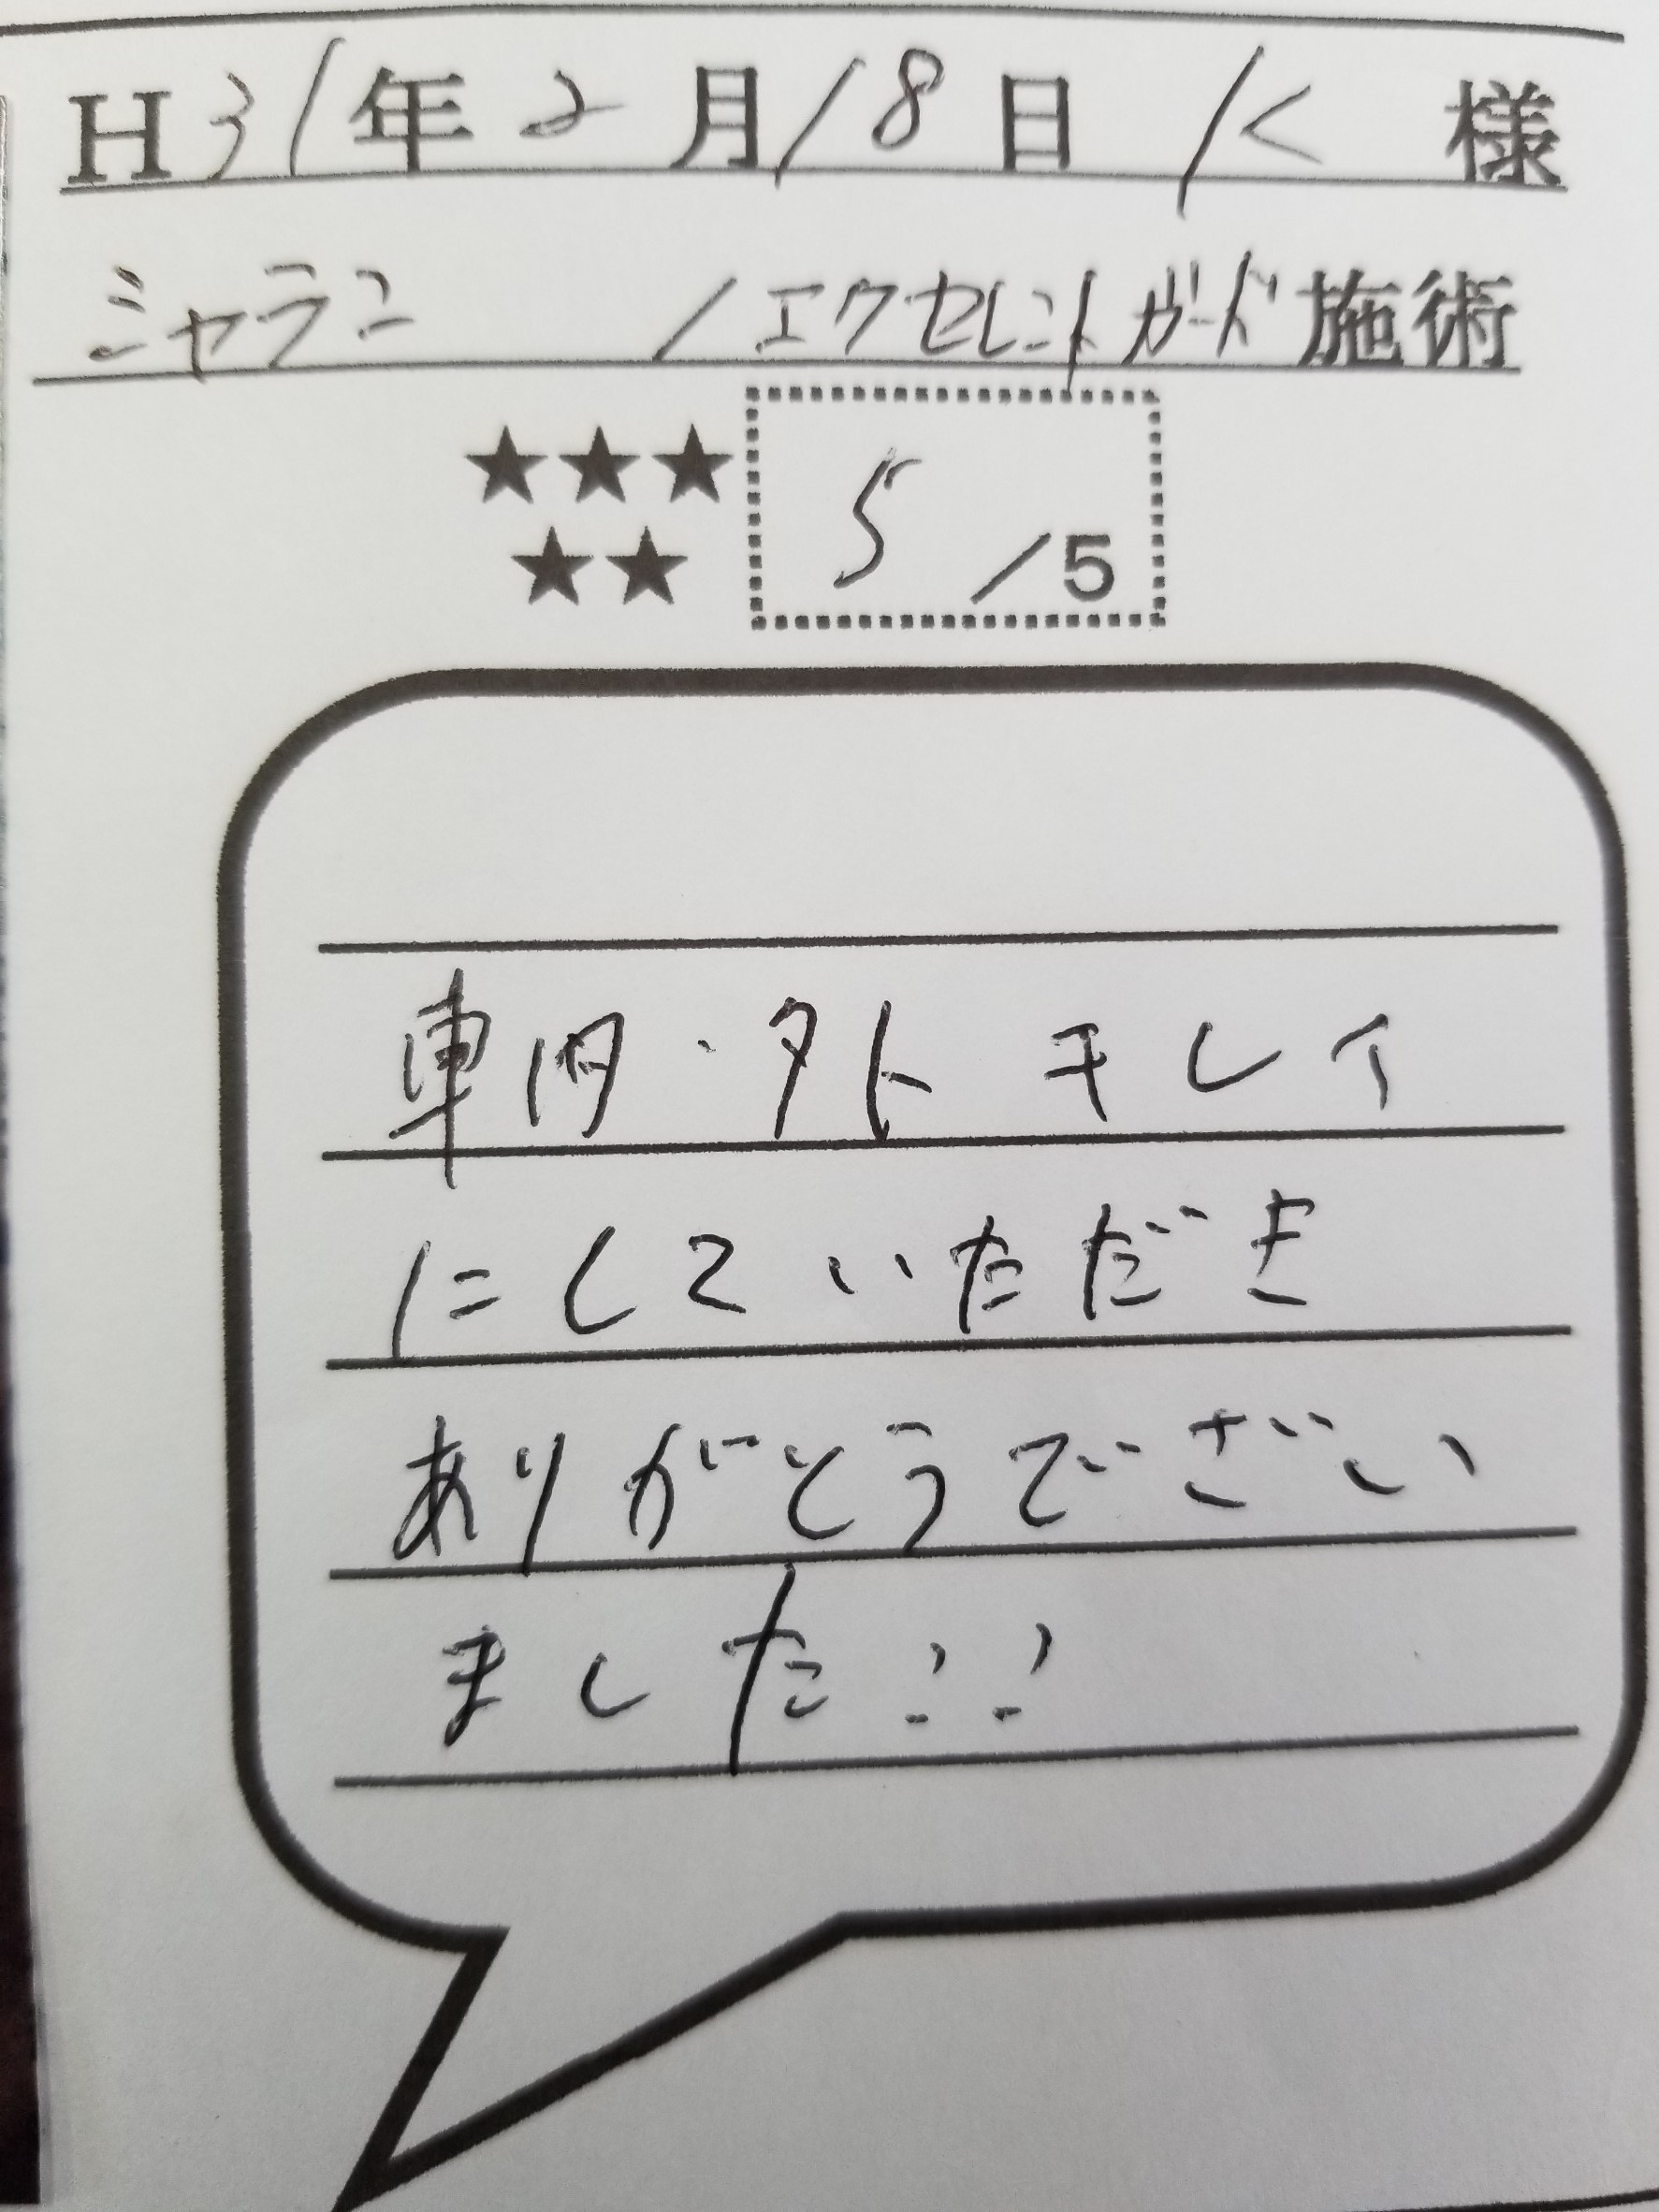 H31年2月18日 K 様
シャラン /エクセレントガード施術
★★★
★★
5/5
車内・外キレイ
にしていただき
ありがとうでざい
ました!!